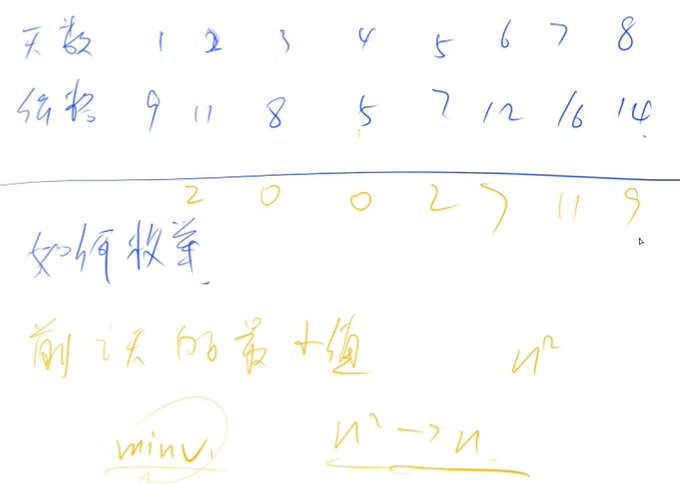 天数 1 2 3 4 5 6 7 8
价格 9 11 8 5 7 12 16 14
2 0 0 2 7 11 9
如何收益
前i天的最小值 n²
minv n²→n